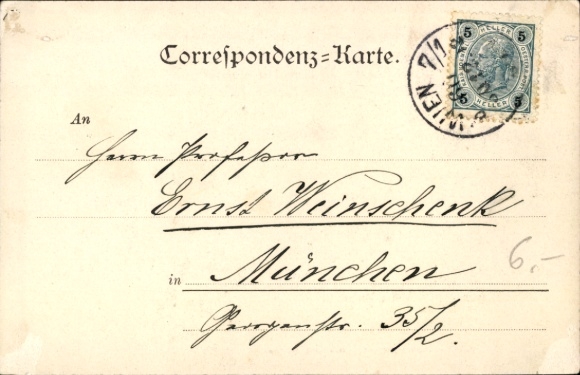 Correspondenz=Karte.
5 HELLER 5
WIEN 7/1
5 HELLER 5
An
Herrn Professor
Ernst Weinschenk
in München
35/2.
6.-